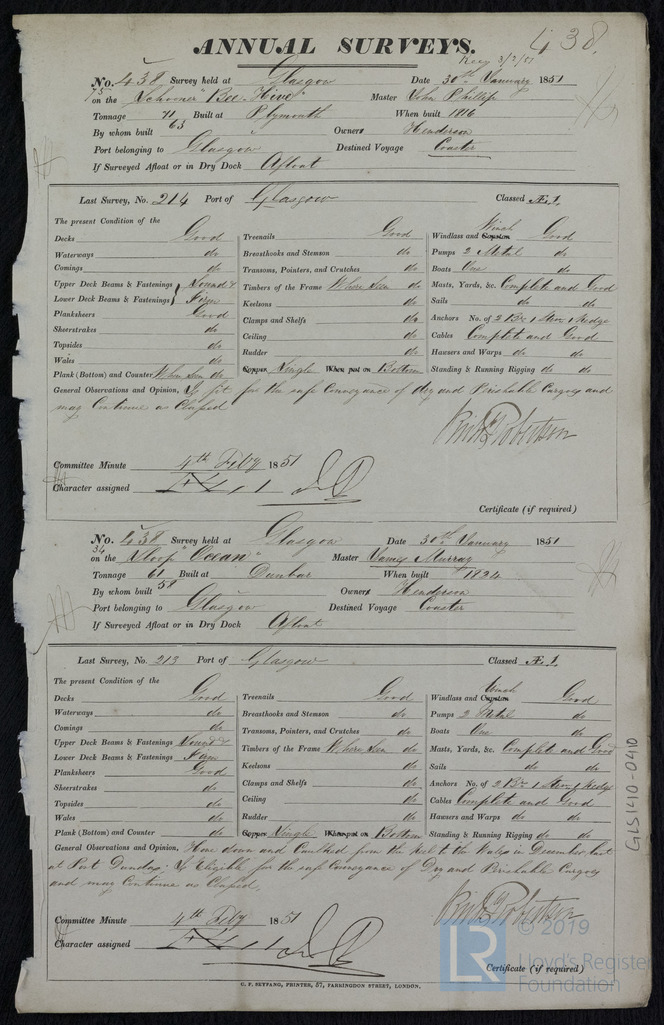 438.
ANNUAL SURVEYS.
3/2/51
No. 438 Survey held at Glasgow Date 30th January 1851
75 on the Schooner "Bee Hive" Master John Phillip
Tonnage 71 Built at Plymouth When built 1816
63
By whom built " Owners Henderson
Port belonging to Glasgow Destined Voyage Coaster
If Surveyed Afloat or in Dry Dock Afloat
Last Survey, No. 214 Port of Glasgow Classed Æ 1.
The present Condition of the
Decks Good
Waterways do
Comings do
Upper Deck Beams & Fastenings Sound &
Lower Deck Beams & Fastenings Firm
Planksheers Good
Sheerstrakes do
Topsides do
Wales do
Plank (Bottom) and Counter When Seen do
Treenails Good
Breasthooks and Stemson do
Transoms, Pointers, and Crutches do
Timbers of the Frame Where Seen do
Keelsons do
Clamps and Shelfs do
Ceiling do
Rudder do
Copper Single When put on Bottom
Windlass and Capston Winch Good
Pumps 2 Metal do
Boats One do
Masts, Yards, &c. Complete and Good
Sails do do
Anchors No. of 2 Br. 1 Strm & Kedge
Cables Complete and Good
Hawsers and Warps do do
Standing & Running Rigging do do
General Observations and Opinion, Is fit for the safe Conveyance of dry and Perishable Cargoes and
may Continue as Classed
Robertson
Committee Minute 4th Feby 1851
Character assigned Æ 1
Certificate (if required)
No. 438 Survey held at Glasgow Date 30th January 1851
34 on the Sloop "Ocean" Master James Murray
Tonnage 61 Built at Dunbar When built 1824
59
By whom built " Owners Henderson
Port belonging to Glasgow Destined Voyage Coaster
If Surveyed Afloat or in Dry Dock Afloat
Last Survey, No. 213 Port of Glasgow Classed Æ 1.
The present Condition of the
Decks Good
Waterways do
Comings do
Upper Deck Beams & Fastenings Sound &
Lower Deck Beams & Fastenings Firm
Planksheers Good
Sheerstrakes do
Topsides do
Wales do
Plank (Bottom) and Counter do
Treenails Good
Breasthooks and Stemson do
Transoms, Pointers, and Crutches do
Timbers of the Frame Where Seen do
Keelsons do
Clamps and Shelfs do
Ceiling do
Rudder do
Copper Single When put on Bottom
Windlass and Capston Winch Good
Pumps 2 Metal do
Boats One do
Masts, Yards, &c. Complete and Good
Sails do do
Anchors No. of 2 Br. 1 Strm & Kedge
Cables Complete and Good
Hawsers and Warps do do
Standing & Running Rigging do do
General Observations and Opinion, Hove down and Caulked from the Keel to the Wales in December last
at Port Dundas, Is Eligible for the safe Conveyance of Dry and Perishable Cargoes
and may Continue as Classed,
Robertson
Committee Minute 4th Feby 1851
Character assigned Æ 1
Certificate (if required)
C. F. SEYFANG, PRINTER, 57, FARRINGDON STREET, LONDON.
GLS1410-0410
LR
© 2019
Lloyd's Register
Foundation